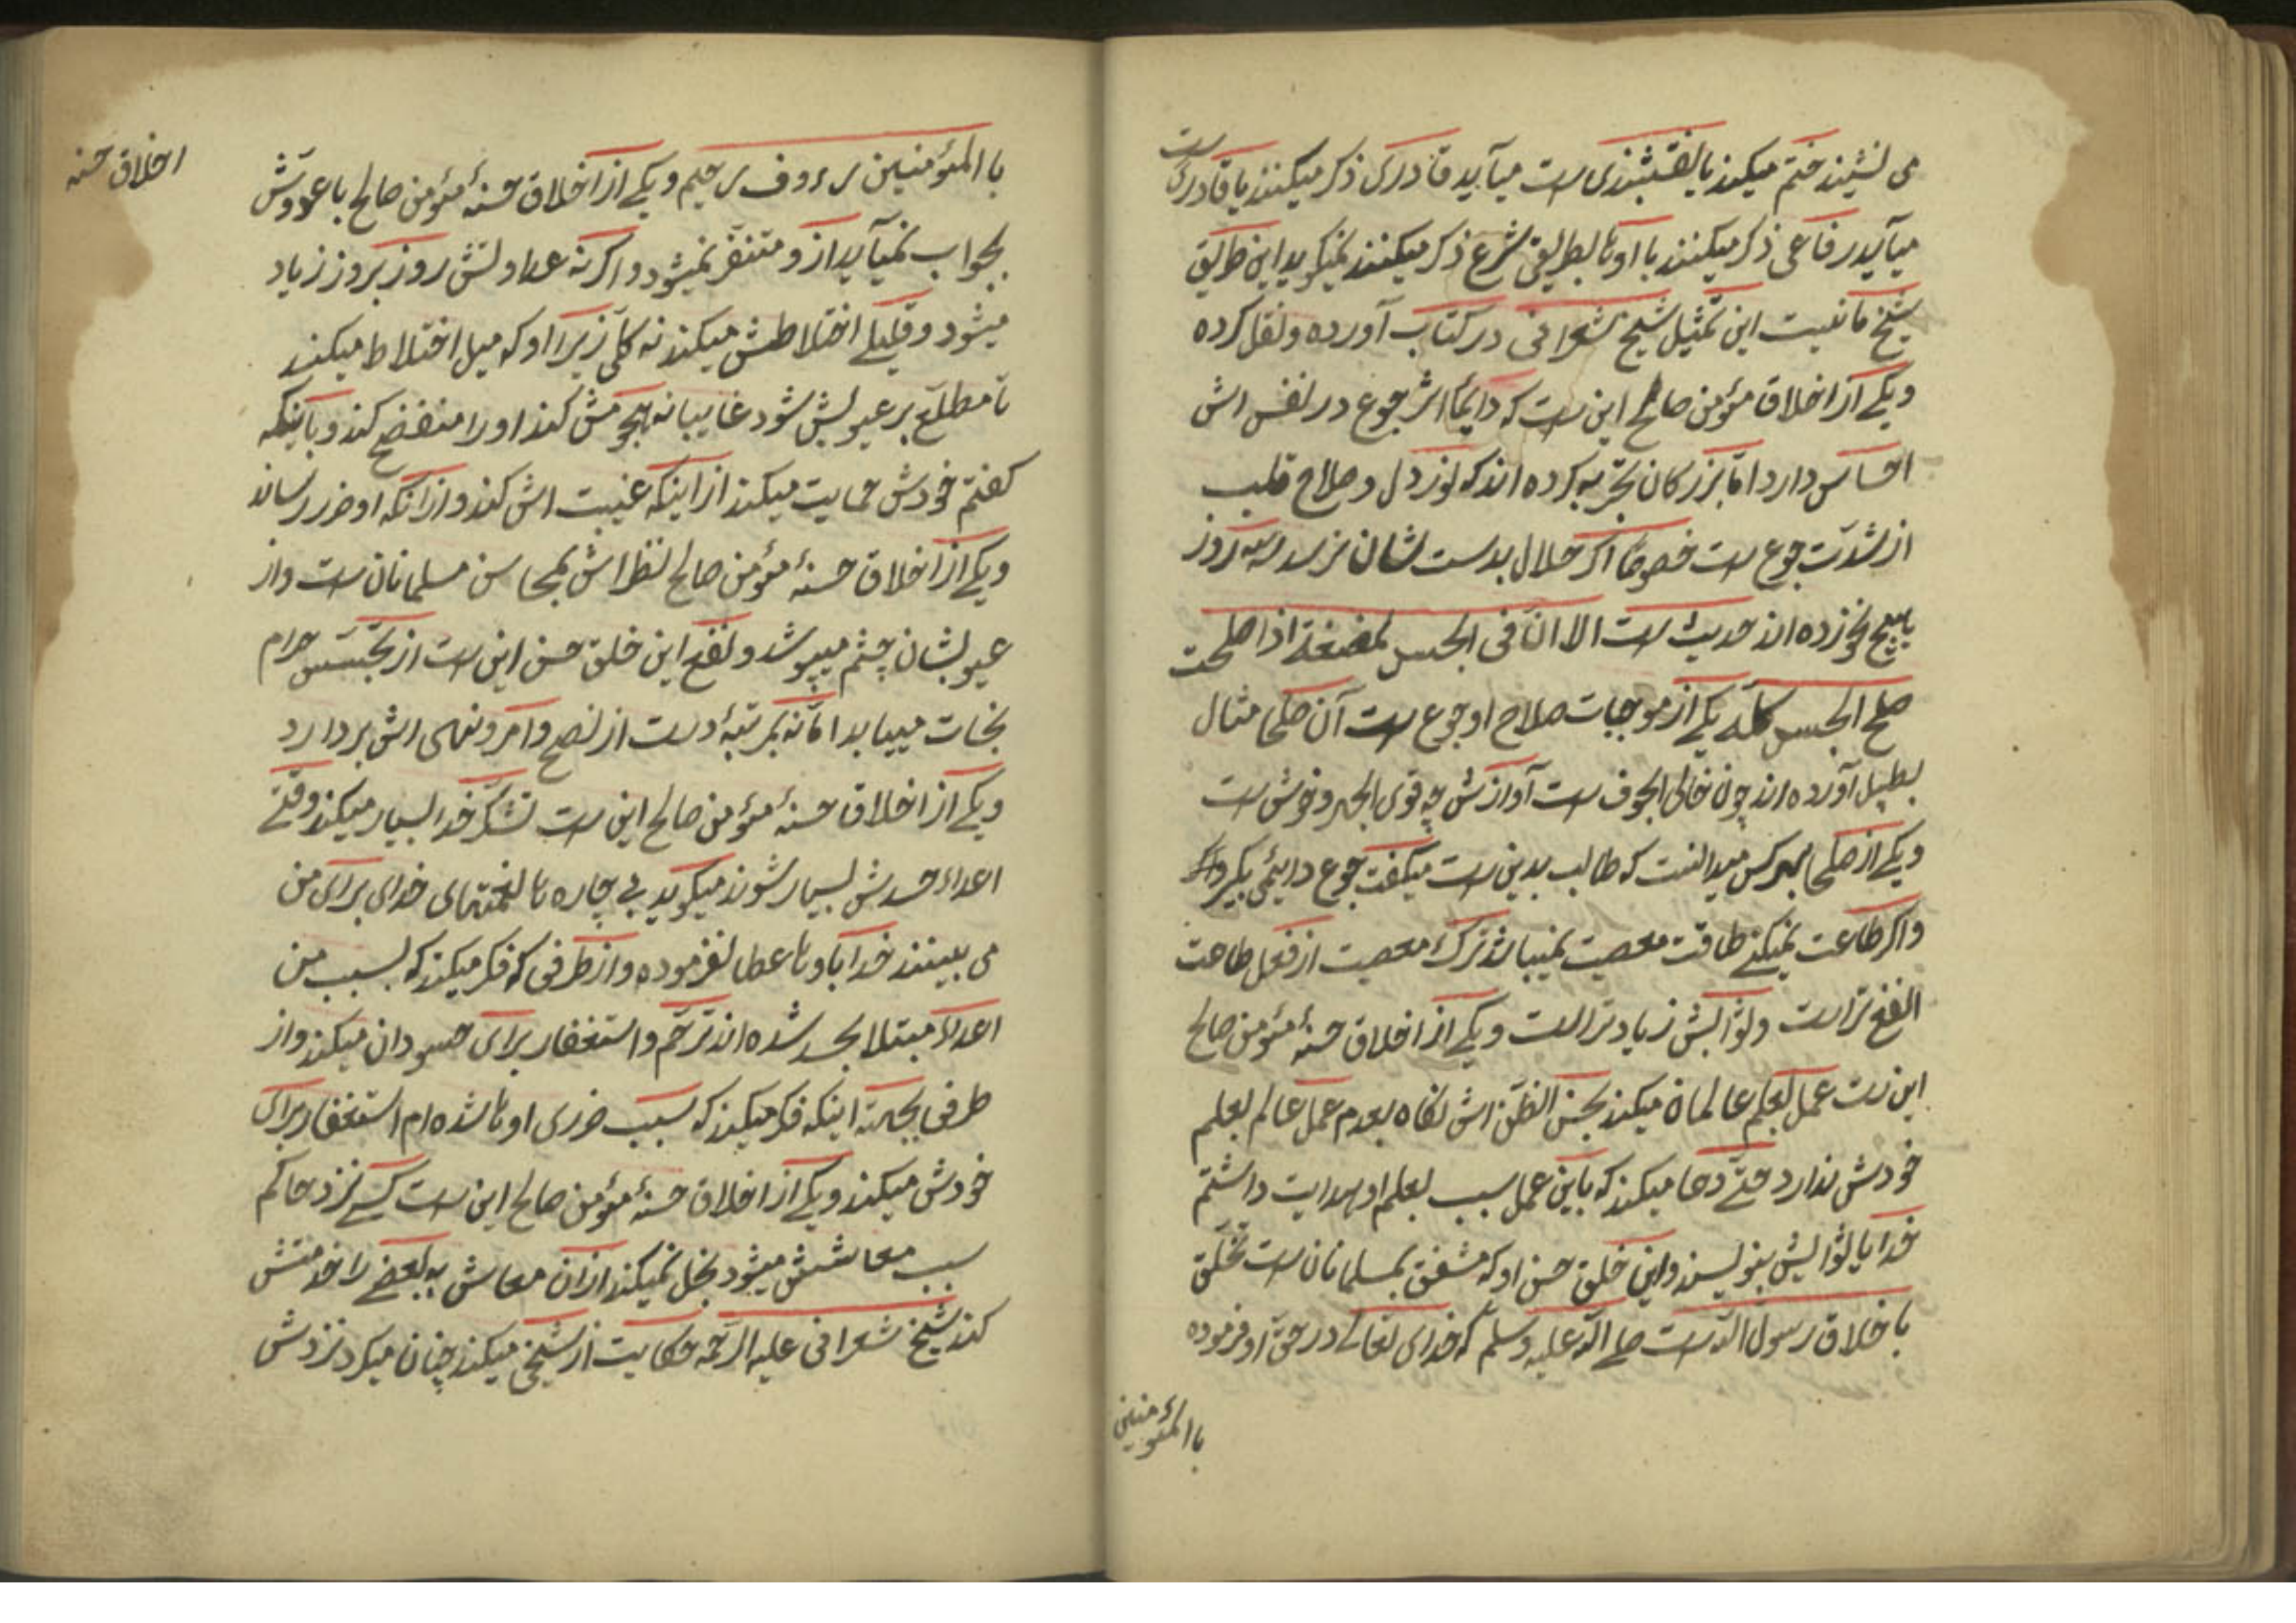 می نشیند ختم میکند با نقشبندی ست میآید قادری ذکر میکنند با قادری ست
میآید رفاعی ذکر میکنند با اونا بطریقی شرع ذکر میکنند نمیگوید این طریق
شیخ ما نیست این تمثیل شیخ شعرانی در کتاب آورده و نقل کرده
ویکی از اخلاق مؤمن صالح این ست که دایمًا اثر جوع در نفس اش
احساس دارد امّا بزرکان تجربه کرده اند که نور دل و صلاح قلب
از شدّت جوع ست خصوصًا اکر حلال بدست شان نرسد سه روز
هیچ نخورده اند حدیث ست الا انّ فی الجسد لمضغة اذا صلحت
صلح الجسد کله یکی از موجبات صلاح او جوع ست آن حکما مثال
بطبل آورده اند چون خالی الجوف ست آوازش چه قوی الجهر و خوش ست
ویکی از حکما بهر کس میدانست که طالب بدین ست میکفت جوع دایمی بکیر
واکر طاعت نمیکنی طاقت معصیت نمیباشد ترک معصیت از فعل طاعت
انفع تر است وثوابش زیادتر است ویکی از اخلاق حسنهٔ مؤمن صالح
این ست عمل بعلم عالمان میکند بحسن الظّن اش نکاه بعدم عمل عالم بعلم
خودش ندارد حتّی دعا میکند که باین عمل سبب بعلم او هدایت داشتم
خدایا ثوابش بنویسد واین خلق حسن او که مشفق بمسلمانان ست تخلّق
باخلاق رسول الله ست صلی الله علیه وسلم که خدای تعالی در حق او فرموده
با المؤمنین
با المؤمنین رءوف رحیم ویکی از اخلاق حسنهٔ مؤمن صالح با عدوش
اخلاق حسنه
بجواب نمیآید از و متنفّر نمیشود واکر نه عداوتش روز بروز زیاد
میشود وقلیلی اختلاطش میکند نه کلی زیرا او که میل اختلاط میکند
تا مطلّع بر عیوبش شود غایبانه هجومش کند اورا منفضح کند وباینکه
کفتم خودش حمایت میکند از اینکه غیبت اش کند وازانکه او ضرر رساند
ویکی از اخلاق حسنهٔ مؤمن صالح نظر اش بمحاسن مسلمانان ست واز
عیوبشان چشم میپوشد ونفع این خلق حسن این ست از تجسّس حرام
نجات مییابد امّا نه بمرتبهٔ دست از نصح وامر ونهی اش بردارد
ویکی از اخلاق حسنهٔ مؤمن صالح این ست تشکر خدا بسیار میکند وقتی
اعداء حسدش بسیار شوند میکوید بی چاره نا نعمتهای خدای برای من
می بینند خدا باونا عطا نفرموده واز طرفی که فکر میکند که بسبب من
اعداء مبتلا بحسد شده اند ترحّم واستغفار برای حسودان میکند واز
طرفی بجهة اینکه فکر میکند که سبب ضرری اونا شده ام استغفار برای
خودش میکند ویکی از اخلاق حسنهٔ مؤمن صالح این ست کسی نزد حاکم
سبب معاشش میشود بخل نمیکند ازان معاش به بعضی را خدمتش
کند شیخ شعرانی علیه الرّحمه حکایت از شیخی میکند چنان میکرد نزدش